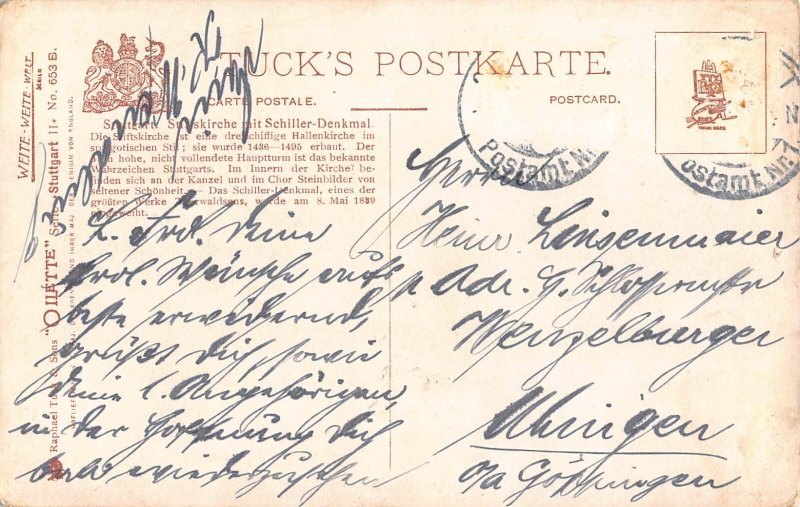 TUCK'S POSTKARTE.
CARTE POSTALE.
POSTCARD.
WEITE-WEITE-WELT
Stuttgart. Stiftskirche mit Schiller-Denkmal.
Die Stiftskirche ist eine dreischiffige Hallenkirche im
spätgotischen Stil; sie wurde 1436-1495 erbaut. Der
hohe, nicht vollendete Hauptturm ist das bekannte
Wahrzeichen Stuttgarts. Im Innern der Kirche be-
finden sich an der Kanzel und im Chor Steinbilder von
seltener Schönheit. — Das Schiller-Denkmal, eines der
größten Werke Thorwaldsens, wurde am 8. Mai 1839
eingeweiht.
Raphael Tuck & Sons "OILETTE" Serie Stuttgart II. No. 653 B.
L. Frd. Deine
Wünsche aufs
beste erwidernd,
grüßt Dich sowie
Deine l. Angehörigen,
in der Hoffnung Dich
bald wiederzusehen
Herrn
Heinr. Linsenmaier
Adr. H. Schlossermstr
Wenzelburger
Uhingen
o/a Göppingen
Postamt Nr.
Postamt Nr. 1